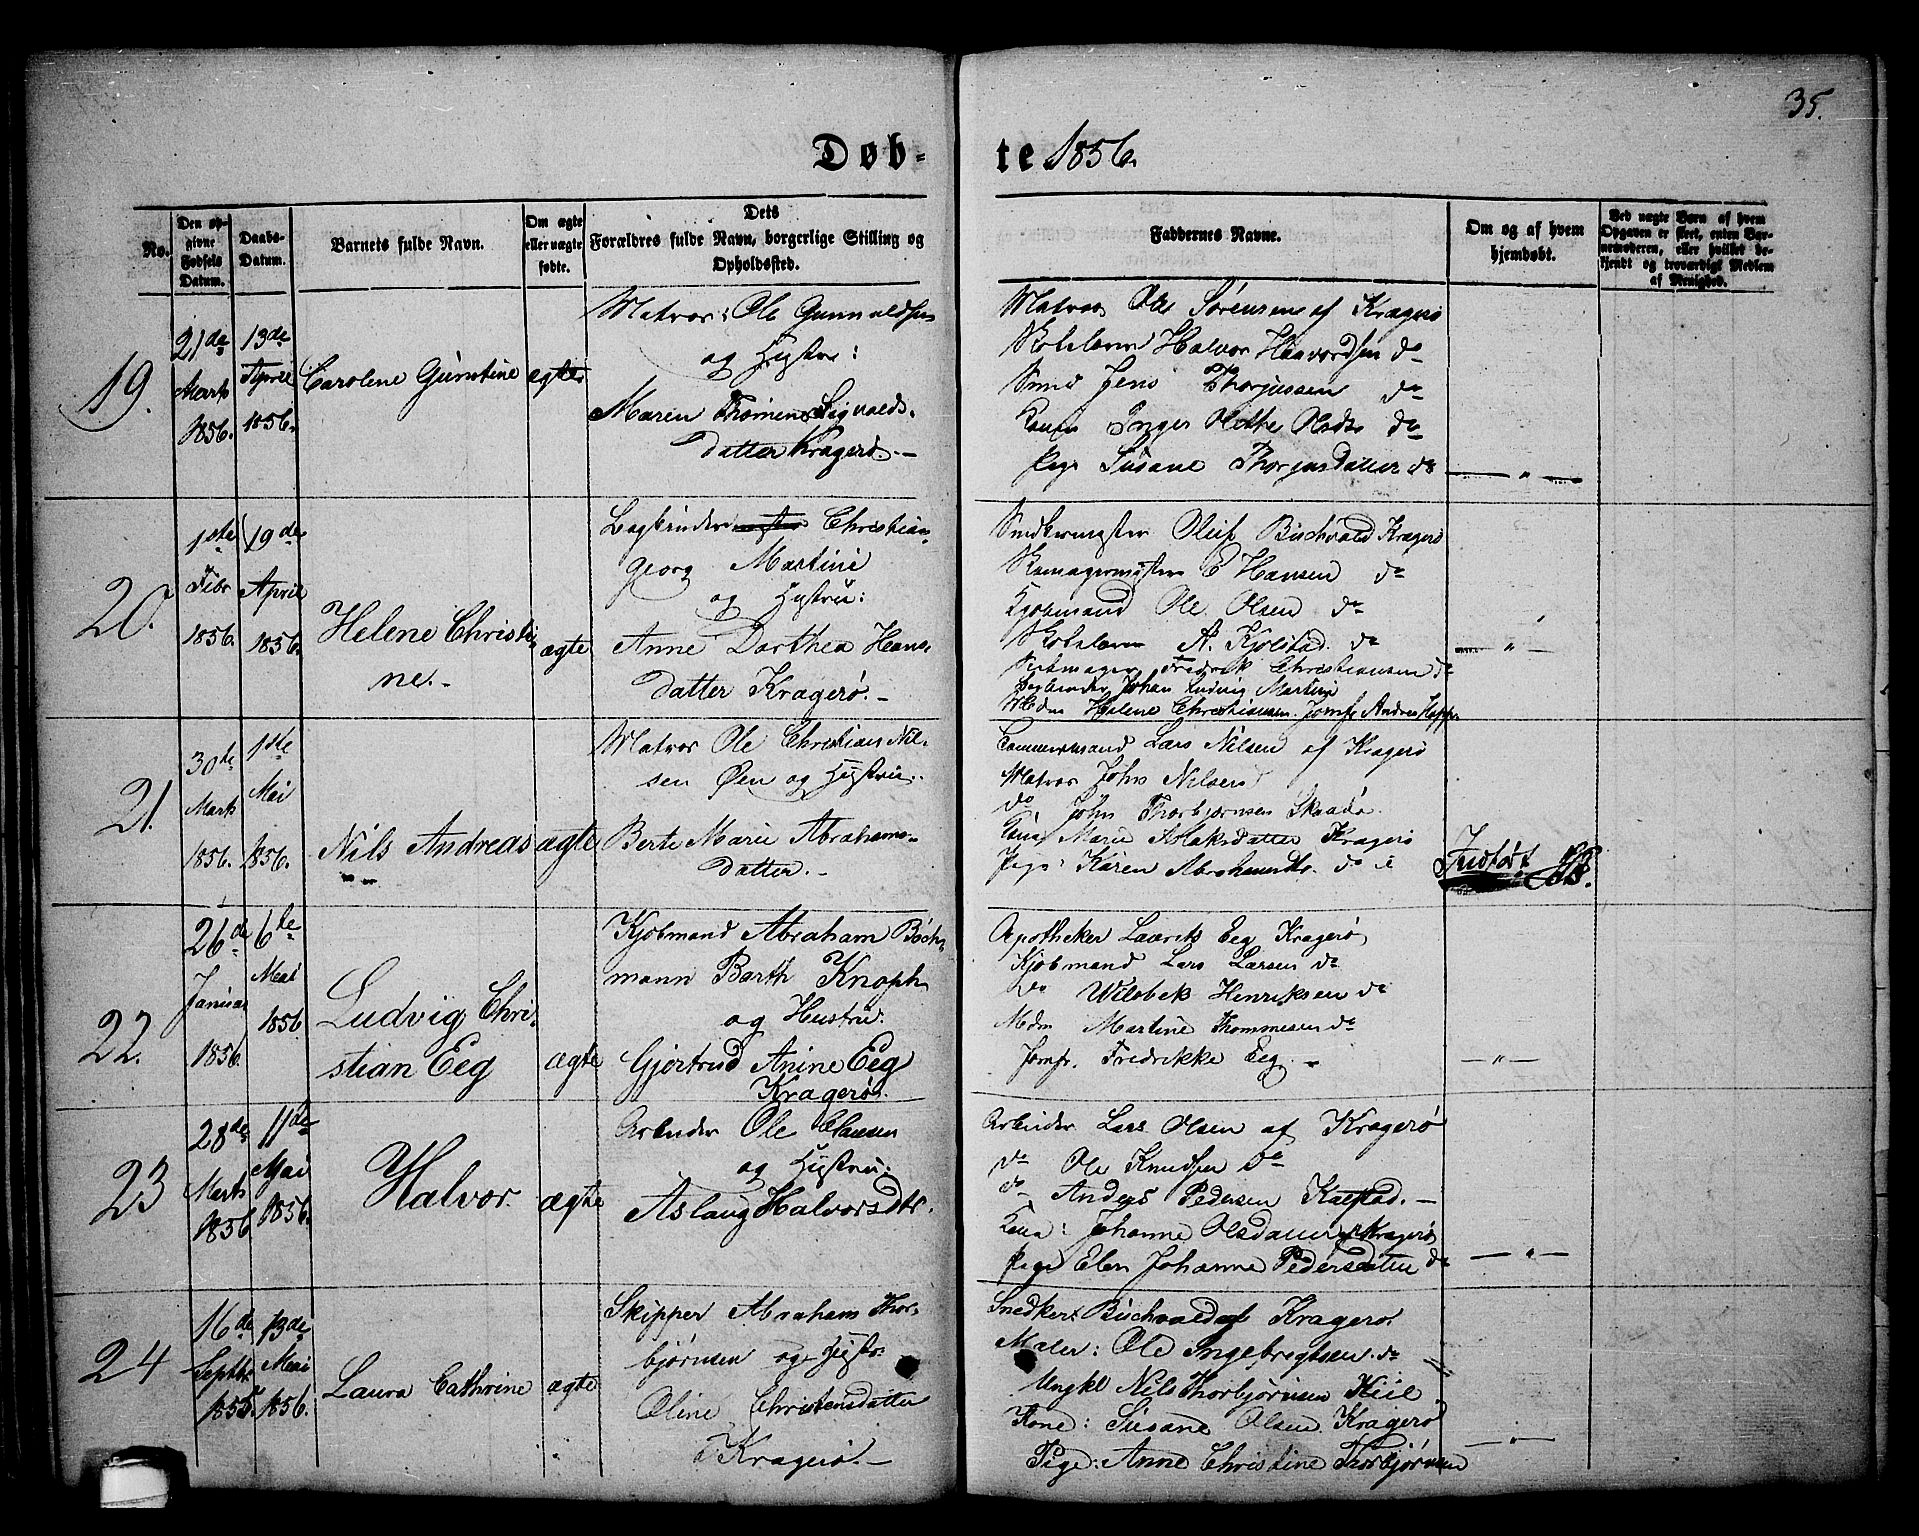 35.
Døb-
te 1856.
No.
Den op-
givne
Fødsels
Datum.
Daabs-
Datum.
Barnets fulde Navn.
Om ægte
eller uægte
fødte.
Dets
Forældres fulde Navn, borgerlige Stilling og
Opholdssted.
Faddernes Navne.
Om og af hvem
hjemdøbt.
Ved uægte Børn af hvem
Opgaven er skeet, enten Bar-
nemoderen, eller hvilket be-
kjendt og troværdigt Medlem
af Menighed.
19.
21de
Marts
1856.
13de
April
1856.
Carolene Gunstine
ægte
Matros: Ole Gunvaldsen
og Hustru:
Maren Thomine Sigvalds-
datter Kragerø.-
Matros Ole Sørensen af Kragerø
Halvor Haavordsen do
Smed Jens Thorjussen do
Kone Inger Olethe Olsdtr do
Pige Susane Thorjusdatter do
20.
1ste
Febr
1856.
19de
April
1856.
Helene Christi-
ne.-
ægte
Bogbinder Christian
Georg Martini
og Hustru:
Anne Dorthea Hans-
datter Kragerø.-
Snedkermester Oluf Buchvald Kragerø
Skomagermester E Hansen do
Kjøbmand Ole Olsen do
A. Kjølstad. do
Fredrik Christiansen do
Bogbinder Johan Ludvig Martini
Mdm Helene Christiansen. Jomfr Andrea
21.
30te
Marts
1856.
1ste
Mai
1856.
Nils Andreas
ægte
Matros Ole Christian Nil-
sen Øen og Hustru:
Berte Marie Abrahams-
datter.-
Tømmermand Lars Nilsen af Kragerø
Matros John Nilsen
do John Thorbjørnsen Skaadø
Kone Marie Aslaksdatter Kragerø
Pige: Karen Abrahamsdtr. do
Indført
22.
26de
Januar
1856.
6te
Mai
1856
Ludvig Chri-
stian Eeg
ægte
Kjøbmand Abraham Boch-
mann Barth Knoph
og Hustru:
Gjertrud Anine Eeg
Kragerø.
Apotheker Laurits Eeg Kragerø
Kjøbmand Lars Larsen do
do Henriksen do
Mdm Martine Thommesen do
Jomfr. Fredrikke Eeg.-
23
28de
Marts
1856
11de
Mai
1856.
Halvor.
ægte
Arbeider Ole Clausen
og Hustru:
Aslaug Halvorsdtr.
Arbeider Lars Olsen af Kragerø
do Ole Knudsen do
do Anders Pedersen Kalstad.-
Kone: Johanne Olsdatter Kragerø
Pige Elen Johanne Pedersdatter do
24
16de
Septbr
1855.
13de
Mai
1856.
Laura Cathrine
ægte
Skipper Abraham Thor-
bjørnsen og Hustr:
Oline Christensdatter
Kragerø.-
Snedker: Buchvald af Kragerø
Maler: Ole Ingebregtsen do
Ungkl Nils Thorbjørnsen Kiil
Kone: Susane Olsen Kragerø
Pige: Anne Christine Thorbjørnsen